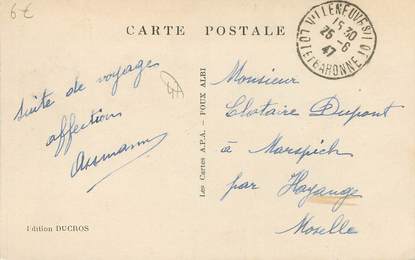 6€
CARTE POSTALE
VILLENEUVE S/LOT
15 30
25-6
47
LOT-ET-GARONNE
Suite de voyages
affections
Assmann
Edition DUCROS
Les Cartes A.P.A. - POUX ALBI
Monsieur
Clotaire Dupont
à Marspich
par Hayange
Moselle